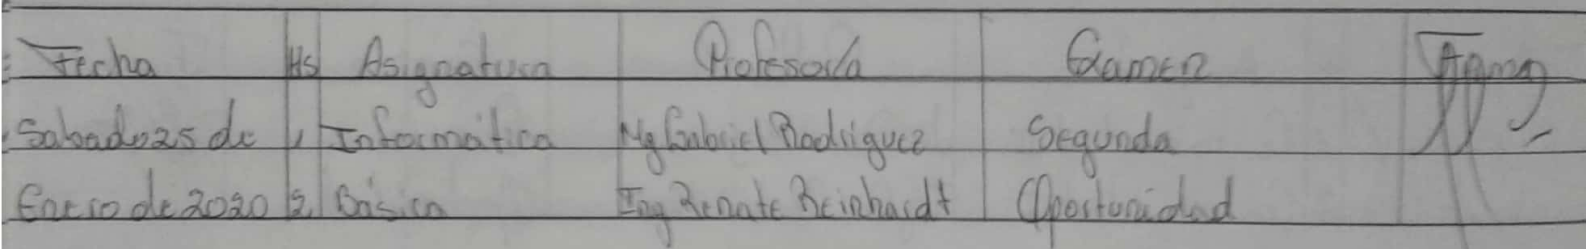 Fecha Hs Asignatura Profesor/a Examen Firma
Sabado 25 de 1 Informática Mg Gabriel Rodriguez Segunda
Enero de 2020 2 Básica Ing Renate Reinhardt Oportunidad